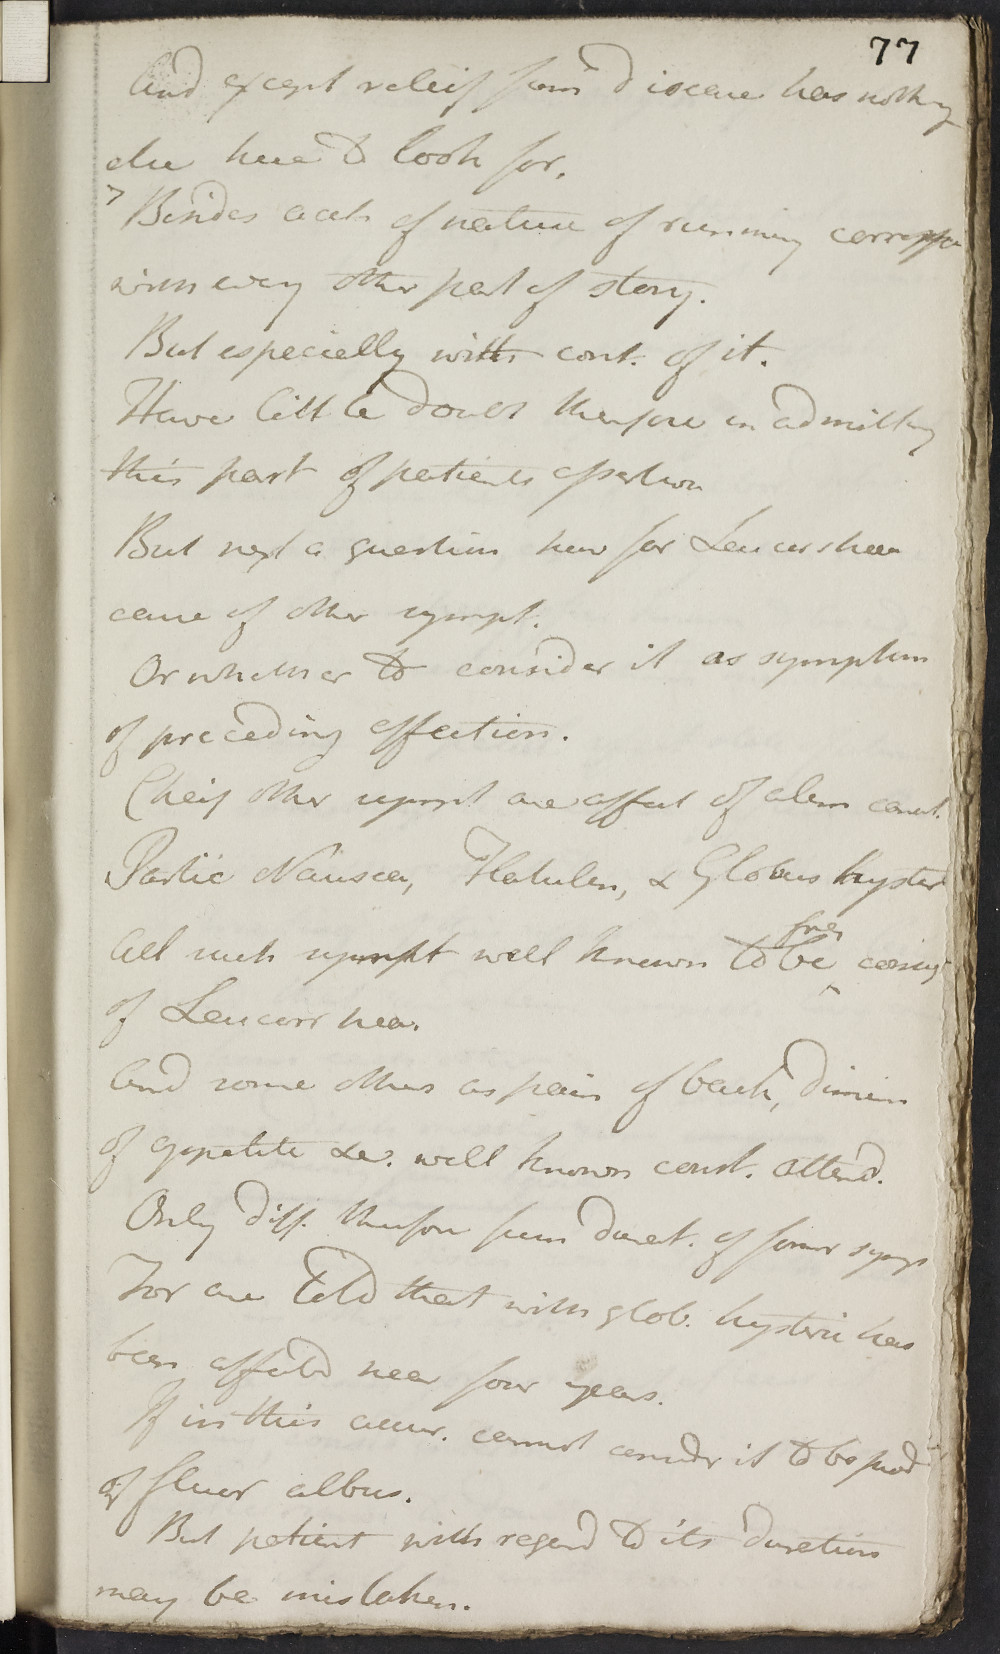 77
And except releif from Disease has nothing
else here to look for.
Besides acct of nature of running
with every other part of story.
But especially with cont. of it.
Have little doubt therefore in admitting
this part of patients assertion
But next a question how far Leucorrhea
cause of other sympt.
Or whether to consider it as symptom
of preceding affection.
Cheif other sympt are affect of alim canal.
Partic Nausea, Flatulen, & Globus hyster
All such sympt well known to be freq conseq
of Leucorrhea.
And some others as pain of back, dimin
of appetite &c. well known const. attend.
Only diff. therefore from durat. of former symp
For are told that with glob. hysteric has
been affected near four years.
If in this accur. cannot consider it to be prod
of fluor albus.
But patient with regard to its duration
may be mistaken.